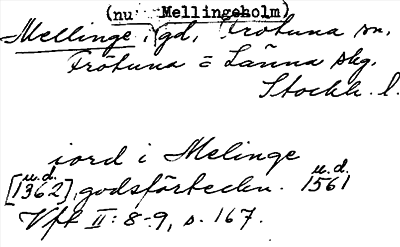 (nu Mellingeholm)
Mellinge, gd, Frötuna sn,
Frötuna o Länna skg.
Stockh. l.
iord i Melinge
u.d. u.d.
[1362], godsförteckn. 1561
Vft II: 8-9, s. 167.